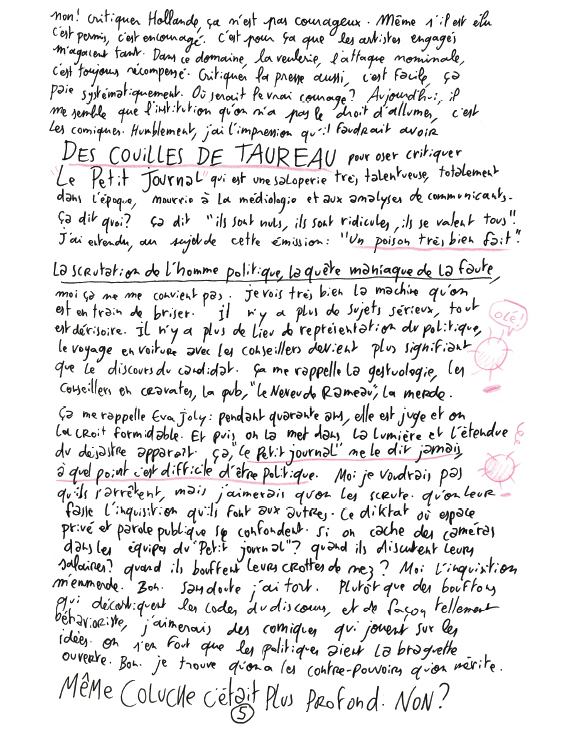 non! critiquer Hollande, ça n'est pas courageux. Même s'il est élu
c'est permis, c'est encouragé. C'est pour ça que les artistes engagés
m'agacent tant. Dans ce domaine, la veulerie, l'attaque nominale,
c'est toujours récompensé. Critiquer la presse aussi, c'est facile, ça
paie systématiquement. Où serait le vrai courage? Aujourd'hui, il
me semble que l'institution qu'on n'a pas le droit d'allumer, c'est
les comiques. Humblement, j'ai l'impression qu'il faudrait avoir
DES COUILLES DE TAUREAU pour oser critiquer
"Le Petit Journal" qui est une saloperie très talentueuse, totalement
dans l'époque, nourrie à la médiologie et aux analyses de communicants.
ça dit quoi? ça dit "ils sont nuls, ils sont ridicules, ils se valent tous!"
J'ai entendu, au sujet de cette émission: "Un poison très bien fait".
La scrutation de l'homme politique, la quête maniaque de la faute,
moi ça ne me convient pas. je vois très bien la machine qu'on
est en train de briser. il n'y a plus de sujets sérieux, tout
est dérisoire. il n'y a plus de lieu de représentation du politique,
OLÉ!
le voyage en voiture avec les conseillers devient plus signifiant
que le discours du candidat. ça me rappelle la gestuologie, les
conseillers en cravates, la pub, "le Neveu de Rameau", la merde.
ça me rappelle Eva Joly: pendant quarante ans, elle est juge et on
la croit formidable. Et puis on la met dans la lumière et l'étendue
du désastre apparaît. ça, le "Petit journal" ne le dit jamais,
à quel point c'est difficile d'être politique. Moi je voudrais pas
qu'ils s'arrêtent, mais j'aimerais qu'on les scrute. qu'on leur
fasse l'inquisition qu'ils font aux autres. Ce diktat où espace
privé et parole publique se confondent. Si on cache des caméras
dans les équipes du "Petit journal"? quand ils discutent leurs
salaires? quand ils bouffent leurs crottes de nez? Moi l'inquisition
m'emmerde. Bon. Sans doute j'ai tort. Plutôt que des bouffons
qui décortiquent les codes du discours, et de façon tellement
béhavioriste, j'aimerais des comiques qui jouent sur les
idées. on s'en fout que les politiques aient la braguette
ouverte. Bon. je trouve qu'on a les contre-pouvoirs qu'on mérite.
Même Coluche c'était plus profond. Non?
5